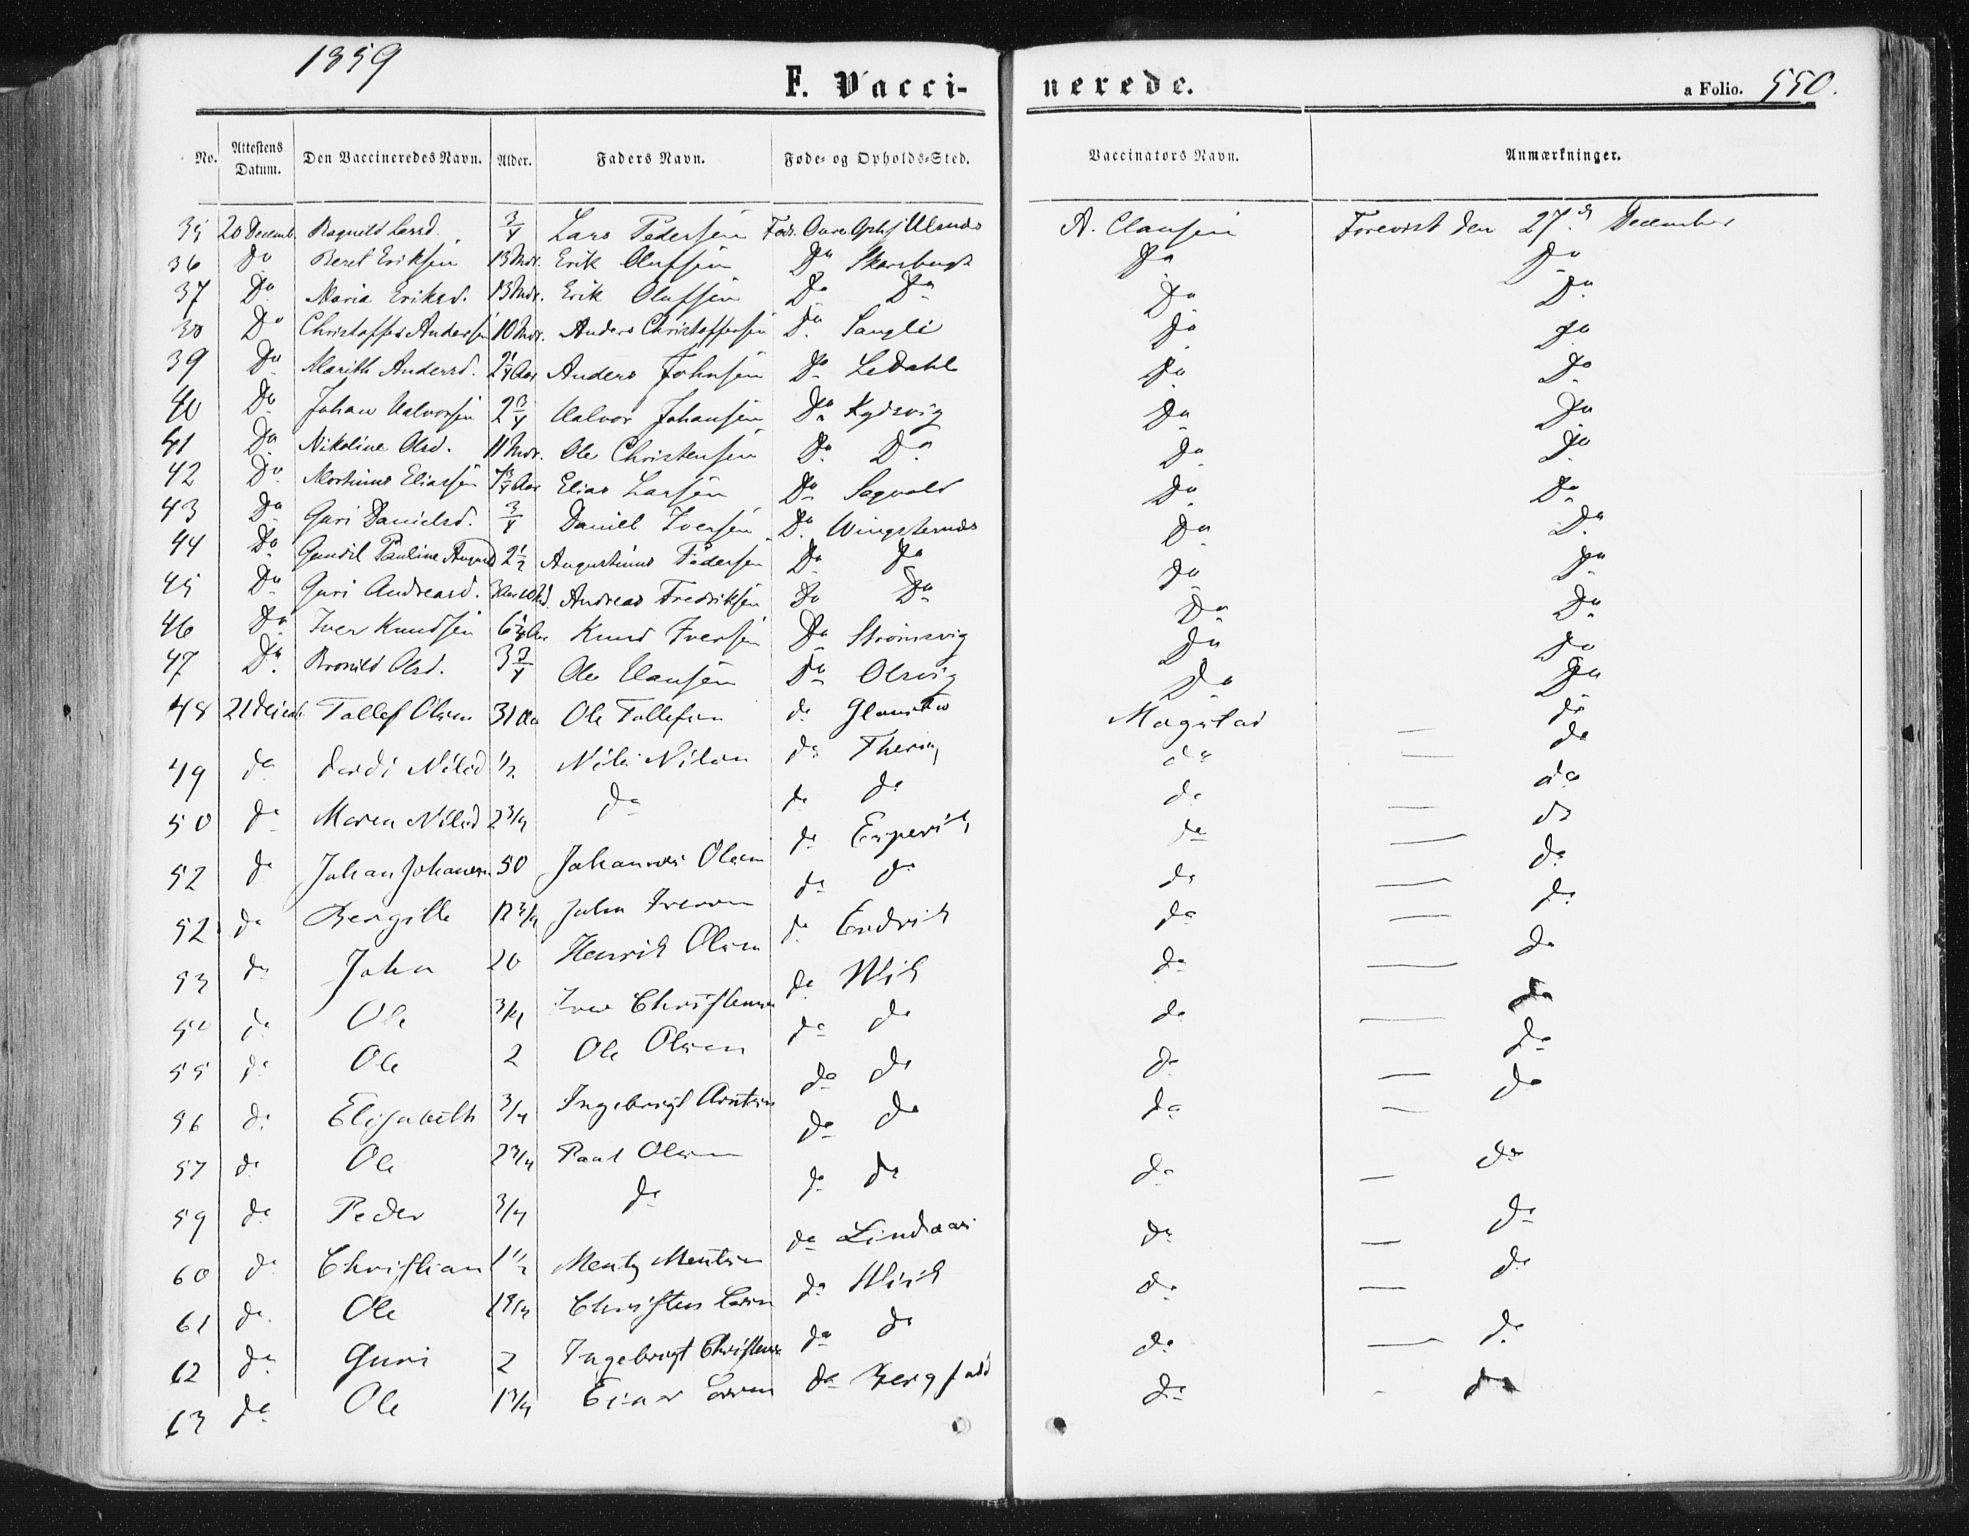 1859
F. Vacci- nerede. a Folio. 550.
No. Attestens Datum. Den Vaccineredes Navn. Alder. Faders Navn. Føde- og Opholds-Sted. Vaccinators Navn. Anmærkninger.
35 20 Decemb. Ragnild Larsd. 3/4 Lars Pedersen A. Clausen Forevist den 27de December
36 Do Beret Eriksen 13 Mdr. Erik Olufsen Do Do Do
37 Do Maria Eriksd. 13 Mdr. Erik Olufsen Do Do Do Do
38 Do Christoffer Andersen 10 Mdr. Anders Christoffersen Do Sangli Do Do
39 Do Marith Andersd. 2 1/4 Aar Anders Johnsen Do Ledahl Do Do
40 Do Johan Halvorsen 2 3/4 Halvor Johansen Do Kydsvig Do Do
41 Do Nikoline Olsd. 11 Mdr. Ole Christensen Do Do Do Do
42 Do Martinus Eliassen Aar Elias Larsen Do Sagvold Do Do
43 Do Guri Danielsd. 3/4 Daniel Iversen Do Wingsternes Do Do
44 Do Gunnil Pauline 2 1/2 Augustinus Pedersen Do Do Do Do
45 Do Guri Andreasd. Andreas Fredriksen Do Do Do Do
46 Do Iver Knudsen Knud Iversen Do Strømsvig Do Do
47 Do Olsd. 3 3/4 Ole Clausen Do Olsvig Do Do
48 21 Tollef Olsen 31 Aa Ole Tollefsen do Magstad do
49 do Nilsd 1/2 Nils Nilsen do do do
50 do Maren Nilsd 2 3/4 do do do do — do
52 do Johan Johansen 50 Johannes Olsen do do — do
52 do Bergitte 12 3/4 John Iversen do do do — do
53 do John 20 Henrik Olsen do Endvik do — do
54 do Ole 3/4 Iver Christensen do do — do
55 do Ole 2 Ole Olsen do do do — do
56 do Elisabeth 3/4 Ingebrigt Arntsen do do do — do
57 do Ole 2 3/4 Paul Olsen do do do — do
59 do Peder 3/4 do do do do — do
60 do Christian 1 1/2 Mentz Mentsen do Lindaas do — do
61 do Ole Christen Larsen do do — do
62 do Guri 2 Ingebrigt Christensen do do do — do
63 do Ole 1 3/4 Einar Larsen do do - do